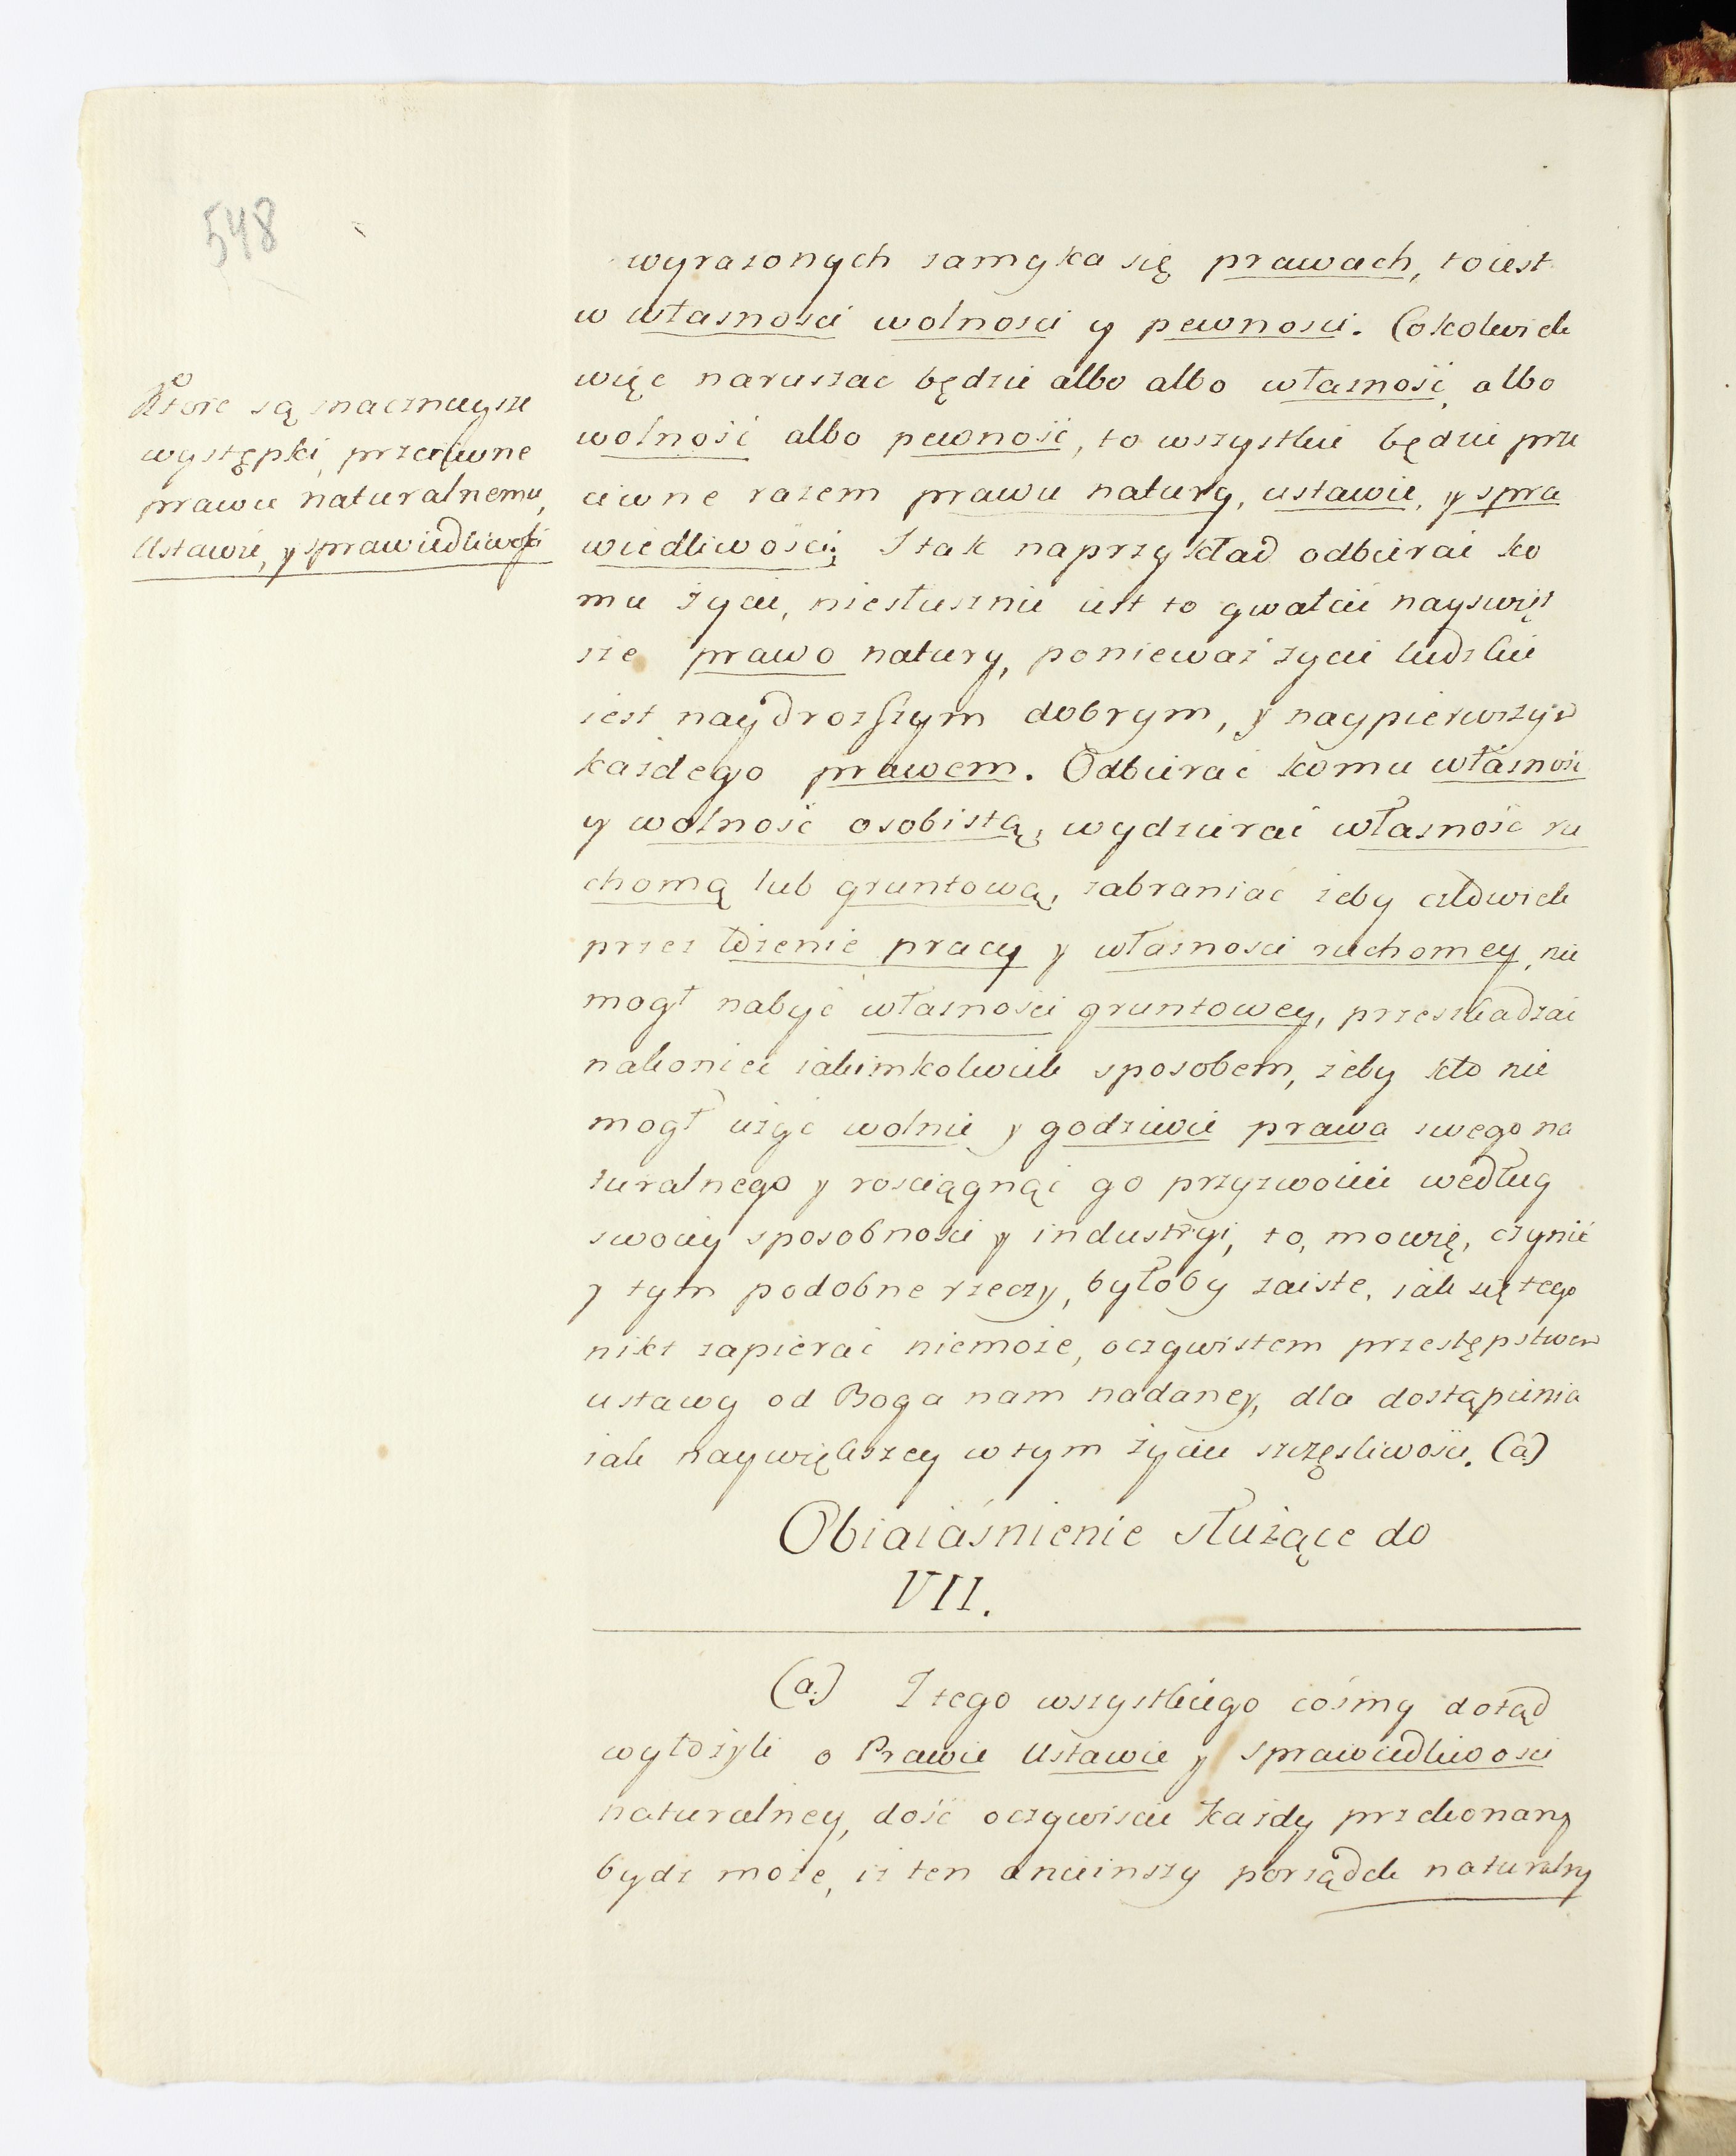 548
wyrazonych zamyka się prawach, toiest
w własnosci wolnosci y pewnosci. Cokolwiek
więc naruszać będzie albo albo własność, albo
wolność albo pewność, to wszystkie będzie prze
ciwne razem prawu natury, ustawie, y spra
wiedliwości; I tak naprzykład odbierać ko
mu życie, niesłusznie iest to gwałcić nayswięt
sze prawo natury, poniewaz zycie ludzkie
iest naydrozszym dobrym, y naypierwszym
kazdego prawem. Odbierać komu własność
y wolność osobistą, wydzierać własność ru
chomą lub gruntową, zabraniać zeby człowiek
przez łożenie pracy y własnosci ruchomey, nie
mogł nabyć własnosci gruntowey, przeszkadzać
nakoniec iakimkolwiek sposobem, żeby kto nie
mogł użyć wolnie y godziwie prawa swego na
turalnego y rosciągnąć go przyzwoicie według
swoiey sposobności y industryi, to, mowię, czynić
y tym podobne rzeczy, byłoby zaiste, iak się tego
nikt zapierać niemoże, oczywistem przestępstwem
ustawy od Boga nam nadaney, dla dostąpienia
iak naywiększey w tym życiu szczęsliwości. (a)
Ktore są znacznieysze
występki, przeciwne
prawu naturalnemu,
Ustawie, y sprawiedliwości
Obiaiaśnienie służące do
VII.
(a.) Z tego wszystkiego cośmy dotąd
wyłożyli o Prawie Ustawie y sprawiedliwosci
naturalney, dość oczywiscie każdy przekonany
bydz może, iż ten a nieinszy porządek naturalny